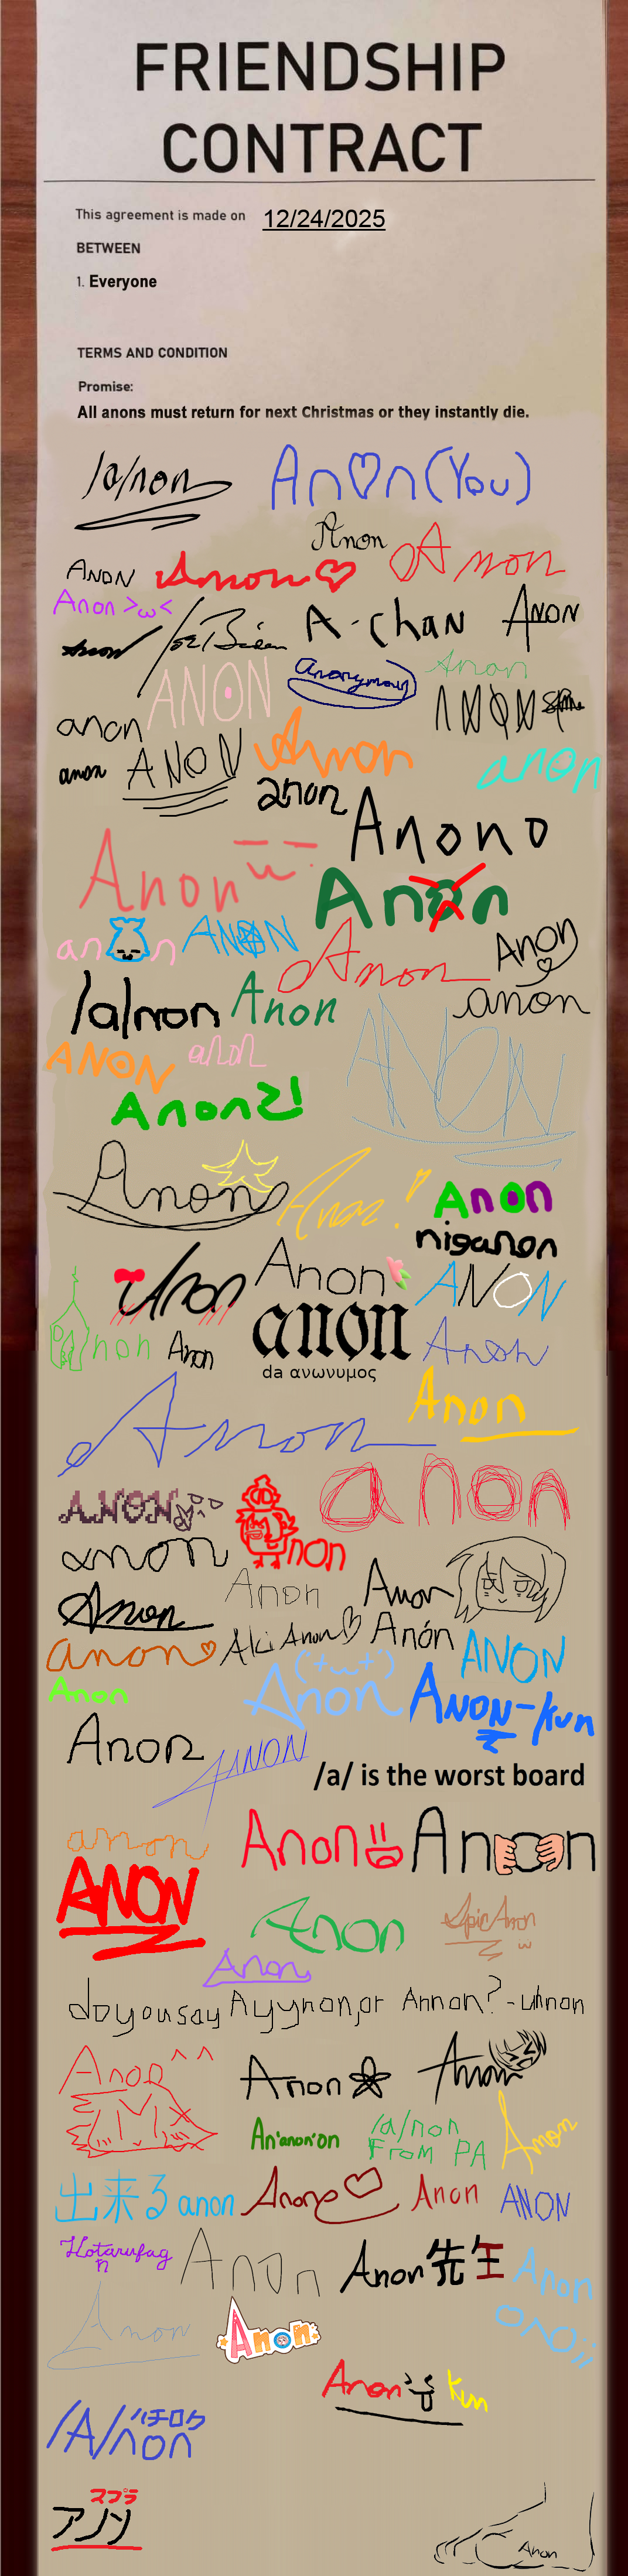 FRIENDSHIP
CONTRACT
This agreement is made on 12/24/2025
BETWEEN
1. Everyone
TERMS AND CONDITION
Promise:
All anons must return for next Christmas or they instantly die.
/a/non
An♡n (You)
Anon
Anon
ANON
Anon♡
Anon >ω<
Anon
Joe Biden
A-chan
ANON
ANON
anonymous
Anon
anon
anon
ANON
Anon
anon
anon
Anono
Anon
Anon
an n
ANON
Anon
Anon
/a/non
Anon
anon
ANON
anon
ANON
Anonع!
Anon
Anon!
Anon
niganon
Anon
Anon
ANON
non
Anon
anon
da ανωνυμος
Anon
Anon
Anon
ANON
non
anon
anon
Anon
Anon
Anon
anon♡
Aki Anon♡
Anón
ANON
Anon
Anon
ANON-kun
Anon
ANON
/a/ is the worst board
anon
Anon
Anon
ANON
Anon
Epic Anon
Anon
do you say Ayynon, or Annon? - unnon
Anon ^^
Anon
Anon
An'anon'on
/a/non
FROM PA
Anon
出来る anon
Anon
Anon
ANON
Hotarufag
n
Anon
Anon先生
Anon
Anon
Anon
Anon
kun
/A/non
ハチロク
スプラ
アノン
Anon